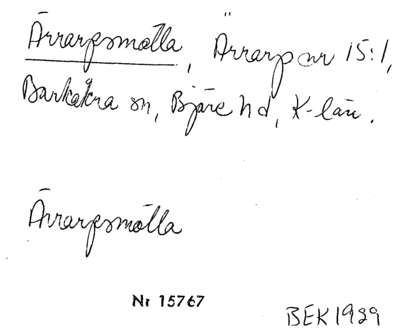 Ärrarpsmölla, Ärrarp nr 15:1,
Barkåkra sn, Bjäre hd, K-län.
Ärrarpsmölla
Nr 15767
BEK 1929